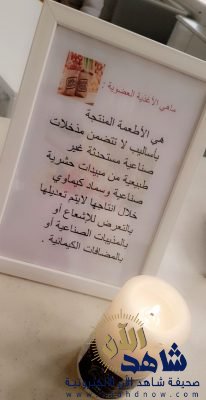 ماهي الأغذية العضوية :
هي الأطعمة المنتجة
بأساليب لا تتضمن مدخلات
صناعية مستحدثة غير
طبيعية من مبيدات حشرية
صناعية وسماد كيماوي
خلال انتاجها لايتم تعديلها
بالتعرض للإشعاع أو
بالمذيبات الصناعية أو
بالمضافات الكيمائية .
شاهد الآن
صحيفة شاهد الآن الإلكترونية